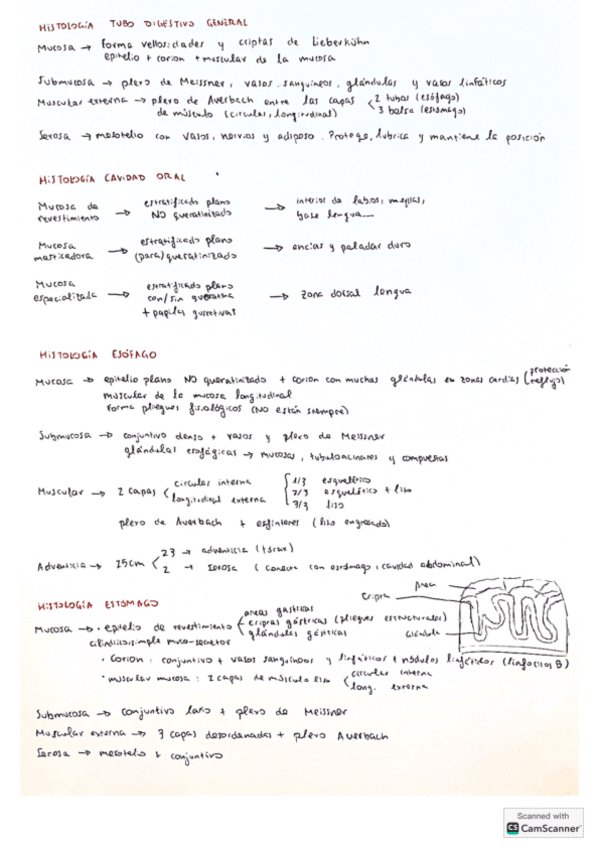 HISTOLOGÍA TUBO DIGESTIVO GENERAL
Mucosa → forma vellosidades y criptas de Lieberkühn
epitelio + corion + muscular de la mucosa
Submucosa → plexo de Meissner, vasos sanguíneos, glándulas y vasos linfáticos
Muscular externa → plexo de Averbach entre las capas < 2 tubos (esófago)
de músculo (circular, longitudinal) 3 bolsa (estómago)
Serosa → mesotelio con vasos, nervios y adiposo. Protege, lubrica y mantiene la posición
HISTOLOGÍA CAVIDAD ORAL
Mucosa de revestimiento → estratificado plano NO queratinizado → interior de labios, mejillas, base lengua...
Mucosa masticadora → estratificado plano (para)queratinizado → encías y paladar duro
Mucosa especializada → estratificado plano con/sin queratina + papilas gustativas → zona dorsal lengua
HISTOLOGÍA ESÓFAGO
Mucosa → epitelio plano NO queratinizado + corion con muchas glándulas en zonas cardias (protección reflujo)
muscular de la mucosa longitudinal
forma pliegues fisiológicos (NO están siempre)
Submucosa → conjuntivo denso + vasos y plexo de Meissner
glándulas esofágicas → mucosas, tubuloacinares y compuestas
Muscular → 2 capas < circular interna { 1/3 esquelético
longitudinal externa 2/3 esquelético + liso
3/3 liso
plexo de Averbach + esfínteres (liso engrosado)
Adventicia → 25cm < 23 → adventicia (tórax)
2 → serosa (conecta con estómago, cavidad abdominal)
HISTOLOGÍA ESTÓMAGO
Mucosa → • epitelio de revestimiento < areas gástricas
cilíndrico simple muco-secretor criptas gástricas (pliegues estructurales)
glándulas gástricas
área
cripta
glándula
• corion: conjuntivo + vasos sanguíneos y linfáticos + nódulos linfáticos (linfocitos B)
• muscular mucosa: 2 capas de músculo liso < circular interna
long. externa
Submucosa → conjuntivo laxo + plexo de Meissner
Muscular externa → 3 capas desordenadas + plexo Averbach
Serosa → mesotelio + conjuntivo
Scanned with
CS CamScanner